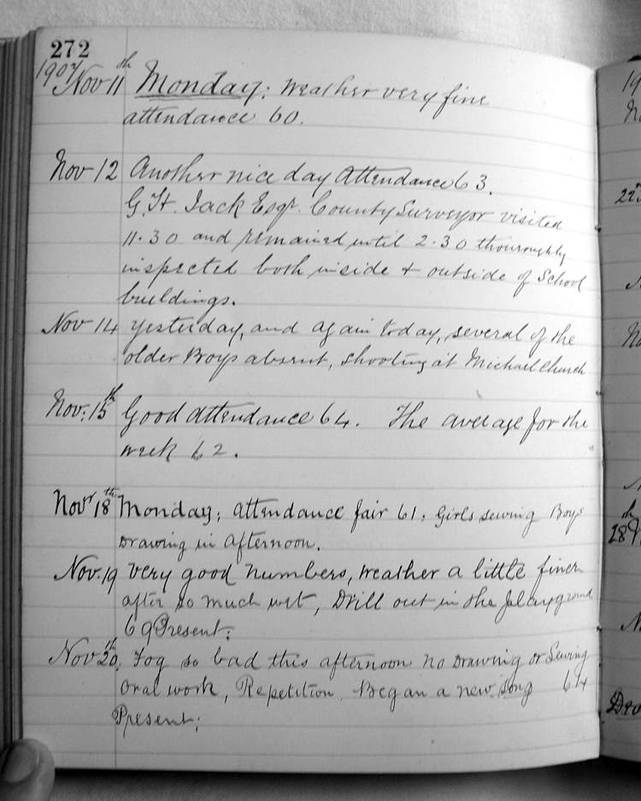 272
1907 Nov 11th Monday: Weather very fine
attendance 60.
Nov 12 Another nice day Attendance 63.
G. H. Jack Esqr. County Surveyor visited
11.30 and remained until 2.30 thouroughly
inspected both inside & outside of School
buildings.
Nov 14 Yesterday, and again today, several of the
older Boys absent, shooting at Michaelchurch
Nov: 15th Good attendance 64. The average for the
week 62.
Novr 18th Monday; Attendance fair 61. Girls sewing Boys
Drawing in afternoon.
Nov. 19 Very good numbers, Weather a little finer
after so much wet, Drill out in the Playground
69 Present:
Nov 20th. Fog so bad this afternoon no Drawing or Sewing
Oral work, Repetition. Began a new song 64
Present: